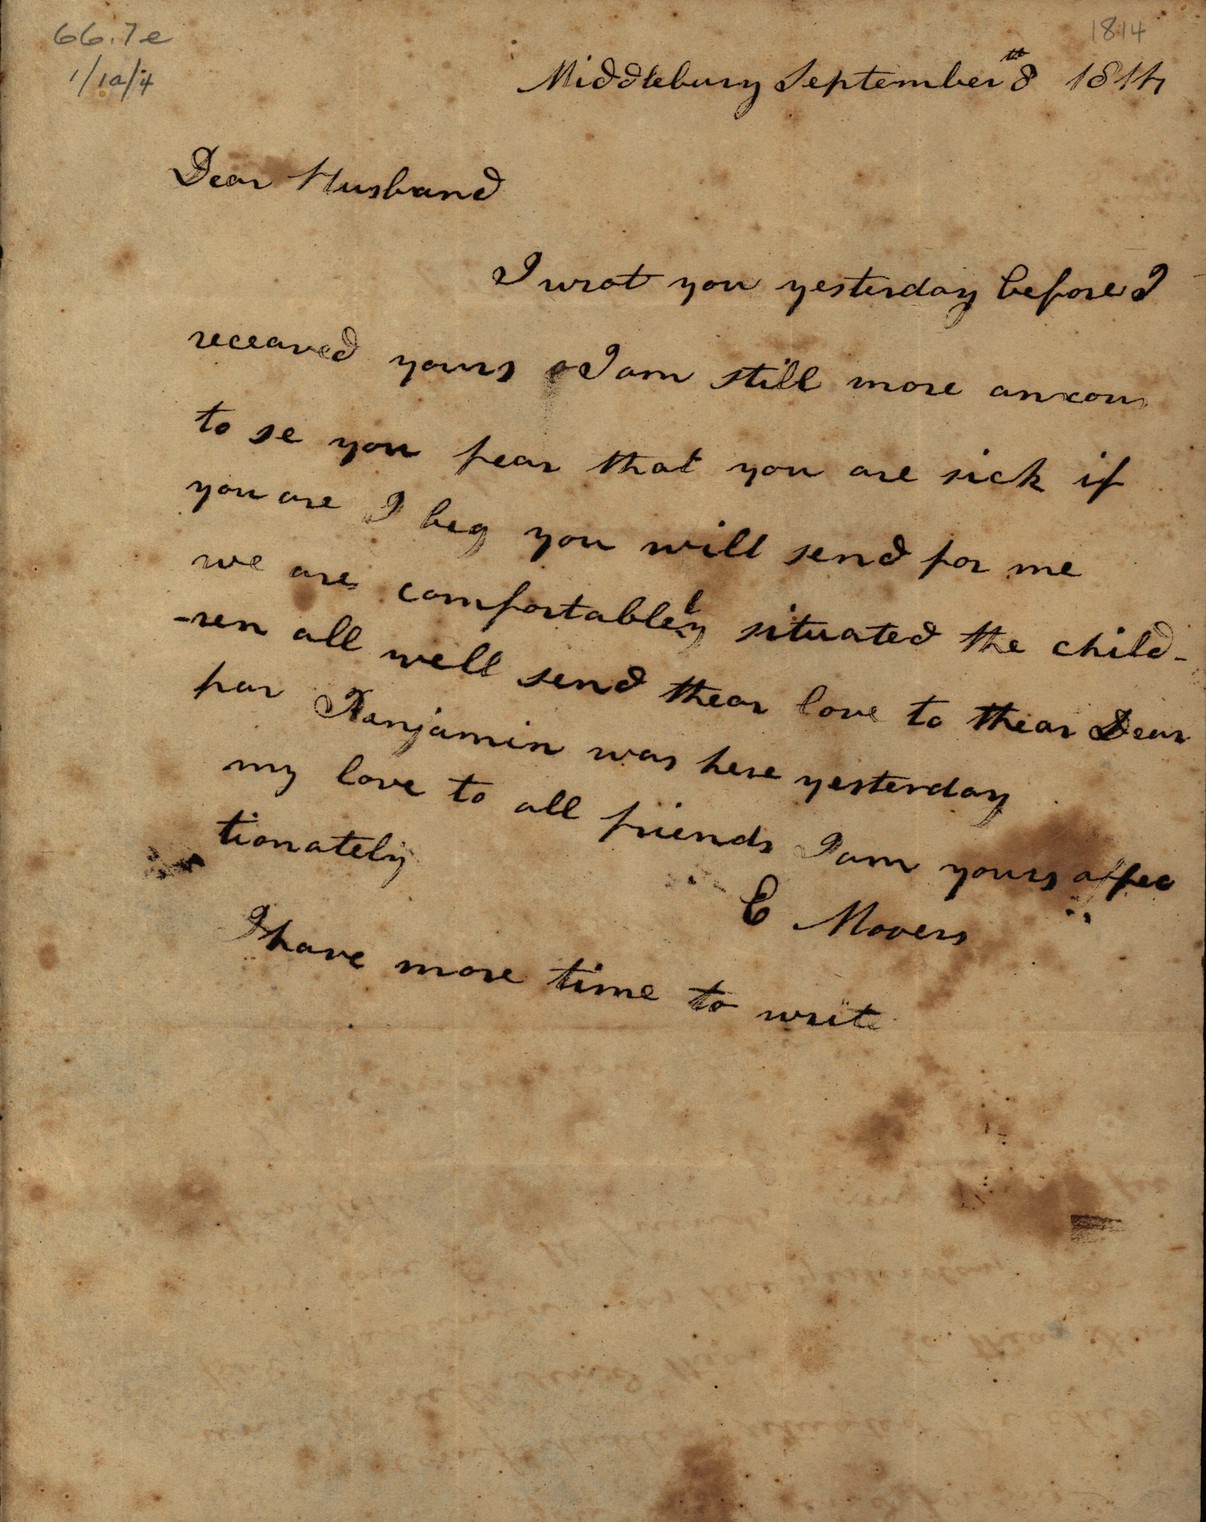 66.7e
1/1a/4
1814
Middlebury September 8th 1814
Dear Husband
I wrot you yesterday before I
receaved yours I am still more anxou
to se you fear that you are sick if
you are I beg you will send for me
we are comfortablely situated the child-
-ren all well send thear love to thear Dear
par Benjamin was here yesterday
my love to all friends I am yours affec
tionately
E Mooers
I have more time to write